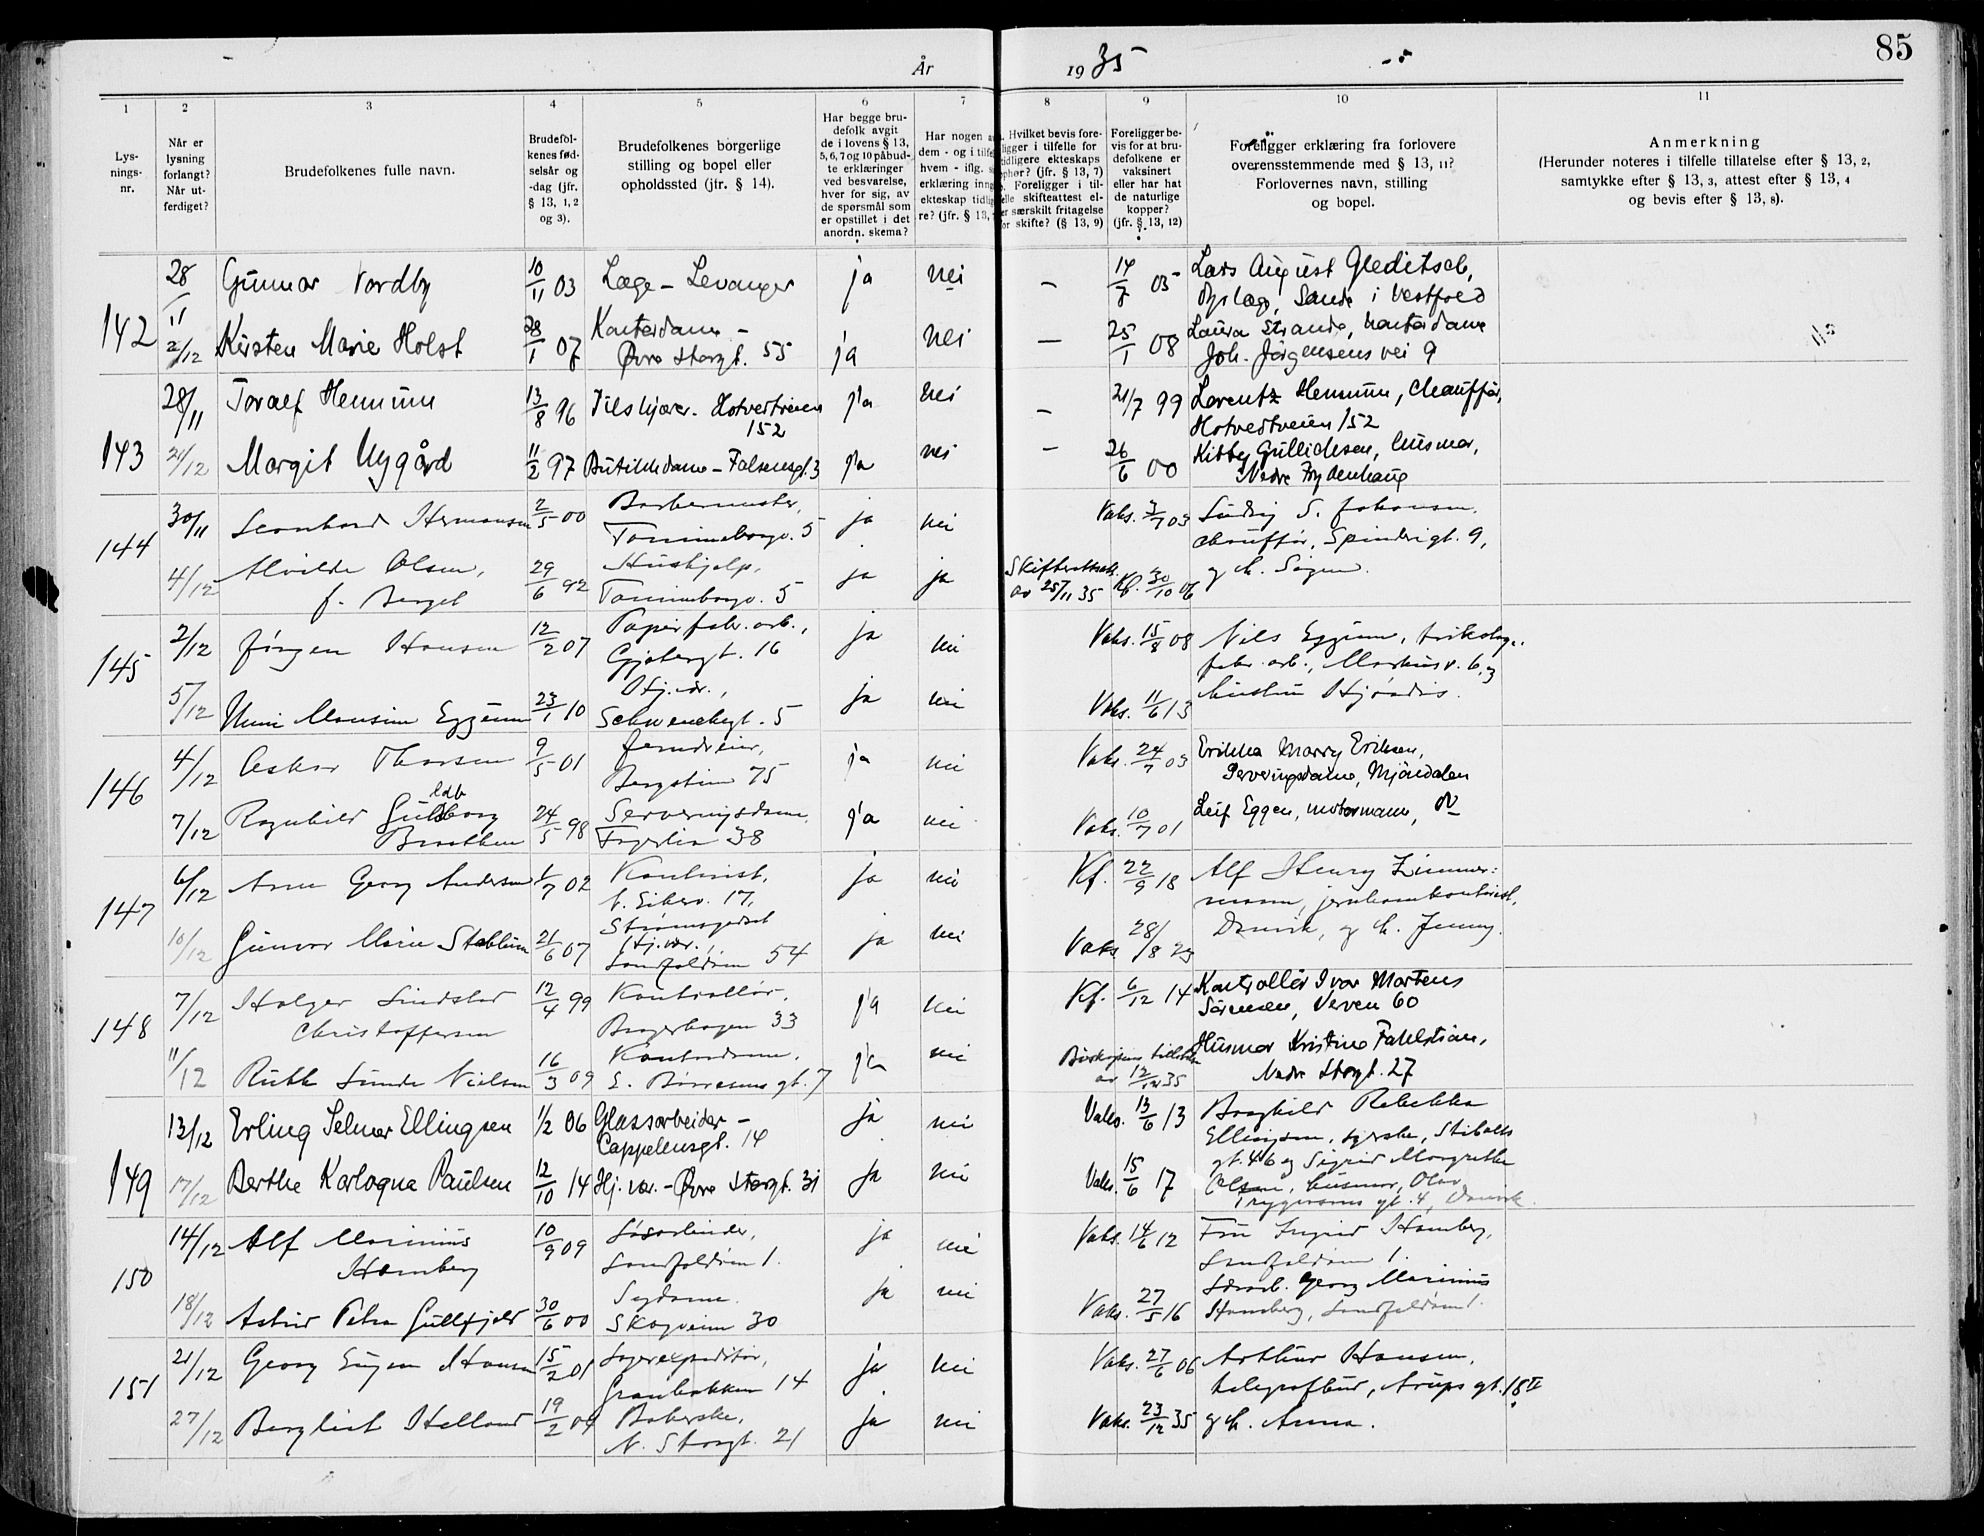 År 1935
85
1 2 3 4 5 6 7 8 9 10 11
Lys-
nings-
nr.
Når er
lysning
forlangt?
Når ut-
ferdiget?
Brudefolkenes fulle navn.
Brudefol-
kenes fød-
selsår og
-dag (jfr.
§ 13, 1, 2
og 3).
Brudefolkenes borgerlige
stilling og bopel eller
opholdssted (jfr. § 14).
Har begge bru-
defolk avgit
de i lovens § 13,
5, 6, 7 og 10 påbud-
te erklæringer
ved besvarelse,
hver for sig, av
de spørsmål som
er opstillet i det
anordn. skema?
Har nogen
dem - og i
hvem - iflg.
erklæring
ekteskap
re? (jfr. § 13,
Hvilket bevis fore-
ligger i tilfelle for
tidligere ekteskaps
ophør? (jfr. § 13, 7)
Foreligger i til-
felle skifteattest el-
ler særskilt fritagelse
for skifte? (§ 13, 9)
Foreligger be-
vis for at bru-
defolkene er
vaksinert
eller har hat
de naturlige
kopper?
(jfr. § 13, 12)
Foreligger erklæring fra forlovere
overensstemmende med § 13, 11?
Forlovernes navn, stilling
og bopel.
Anmerkning
(Herunder noteres i tilfelle tillatelse efter § 13, 2,
samtykke efter § 13, 3, attest efter § 13, 4
og bevis efter § 13, 8).
142 28/11 Gunnar Nordby 10/11 03 Læge - Levanger ja nei - 14/7 05 Lars August Gleditsch,
Sande i Vestfold
2/12 Kirsten Marie Holst 28/1 07 Kontordame -
Øvre Storgt. 55 ja nei - 25/1 08 Laura Strande, kontordame
Joh. Jørgensens vei 9
143 28/11 Toralf Hennum 13/8 96 Hotvedtveien
152 ja nei - 21/7 99 Lorentz Hennum, Chauffør,
Hotvedtveien 152
21/12 Margit Nygård 11/2 97 Butikkdame - Falsensgt. 3 ja nei - 26/6 00 Kitty Gullichsen, husmor,
Nedre Frydenhaug
144 30/11 Leonhard Hermansen 2/5 00 Barbermester,
5 ja nei Vaks. 3/7 03 Ludvig S. Johansen
chauffør, Spinderigt. 9,
4/12 Alvilde Olsen,
f. Berget 29/6 92 Hushjelp,
5 ja ja Skifteattest.
av 25/11 35 Kf. 30/10 06 og h. Signe.
145 2/12 Jørgen Hansen 12/2 07 Papirfabr. arb.,
16 ja nei Vaks. 15/8 08 Nils Eggum,
fabr. arb., 6, og
5/12 Eggum 23/1 10 Hj. vær.,
Schwenckegt. 5 ja nei Vaks. 11/6 13 hustru Hjørdis.
146 4/12 Oskar Thorsen 9/5 01
75 ja nei Vaks. 24/7 03 Erikka Marry Eriksen,
Serveringsdame, Mjöndalen
7/12 Ragnhild Guldborg
Braathen 24/5 98 Serveringsdame,
Fagerlia 38 ja nei Vaks. 10/7 01 Leif Eggen, motormann,
147 6/12 Arne Georg Andersen 1/7 02 Kontorist,
17, ja nei Kf. 22/9 18 Alf Henry Zimmer-
mann, jernbanekontorist,
10/12 Gunvor Marie 21/6 07 Strømsgodset
Hj. vær.,
54 ja nei Vaks 28/8 23 og h. Jenny.
148 7/12 Holger Lindstad
Christoffersen 12/4 99 Kontrollør,
Bragerhagen 33 ja nei Kf. 6/12 14 Kontrollör Ivar Martens
Sörensen, Verven 60
11/12 Ruth Sunde Nielsen 16/3 09 Kontordame,
gt. 7 ja nei av 12/12 35 Husmor Kristine
Nedre Storgt. 27
149 13/12 Erling Selmer Ellingsen 1/2 06 Glassarbeider -
Cappelensgt. 14 ja nei Vaks. 13/6 13 Borghild Rebekka
Ellingsen, syerske, Stibolts
17/12 Berthe Karlogna Paulsen 12/10 14 Hj. vær. - Øvre Storgt. 31 ja nei Vaks. 15/6 17 gt. 46 og Sigrid Margrethe
Olsen, husmor, Olav
Trygvasons gt. 4,
150 14/12 Alf Marinius
Hamberg 10/9 09 Løsarbeider,
1. ja nei Vaks. 14/6 12 Fru Ingrid Hamberg,
1.
18/12 Astrid Petra Gullfjeld 30/6 00 Sydame.
Skogveien 30 ja nei Vaks. 27/5 16 Georg Marinius
Hamberg, 1.
151 21/12 Georg Eugen Hansen 15/2 01 Lagerexpeditør,
Granbakken 14 ja nei Vaks. 27/6 06 Arthur Hansen,
telegrafbud, Arups gt. 18 II
27/12 Bergliot Helland 19/2 04
N. Storgt. 21 ja nei Vaks. 23/12 35 og h. Anna.